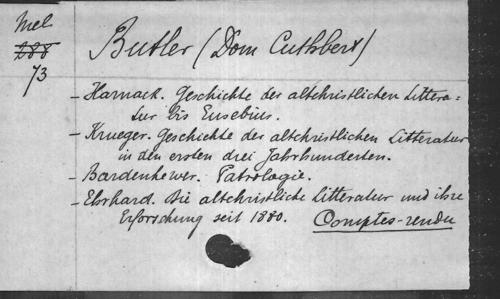 Mel
288
73
Butler (Dom Cuthbert)
- Harnack. Geschichte der altchristlichen Littera=
tur bis Eusebius.
- Krueger. Geschichte der altchristlichen Litteratur
in den ersten drei Jahrhunderten.
- Bardenhewer. Patrologie.
- Ehrhard. Die altchristliche Litteratur und ihre
Erforschung seit 1880. Comptes-rendu